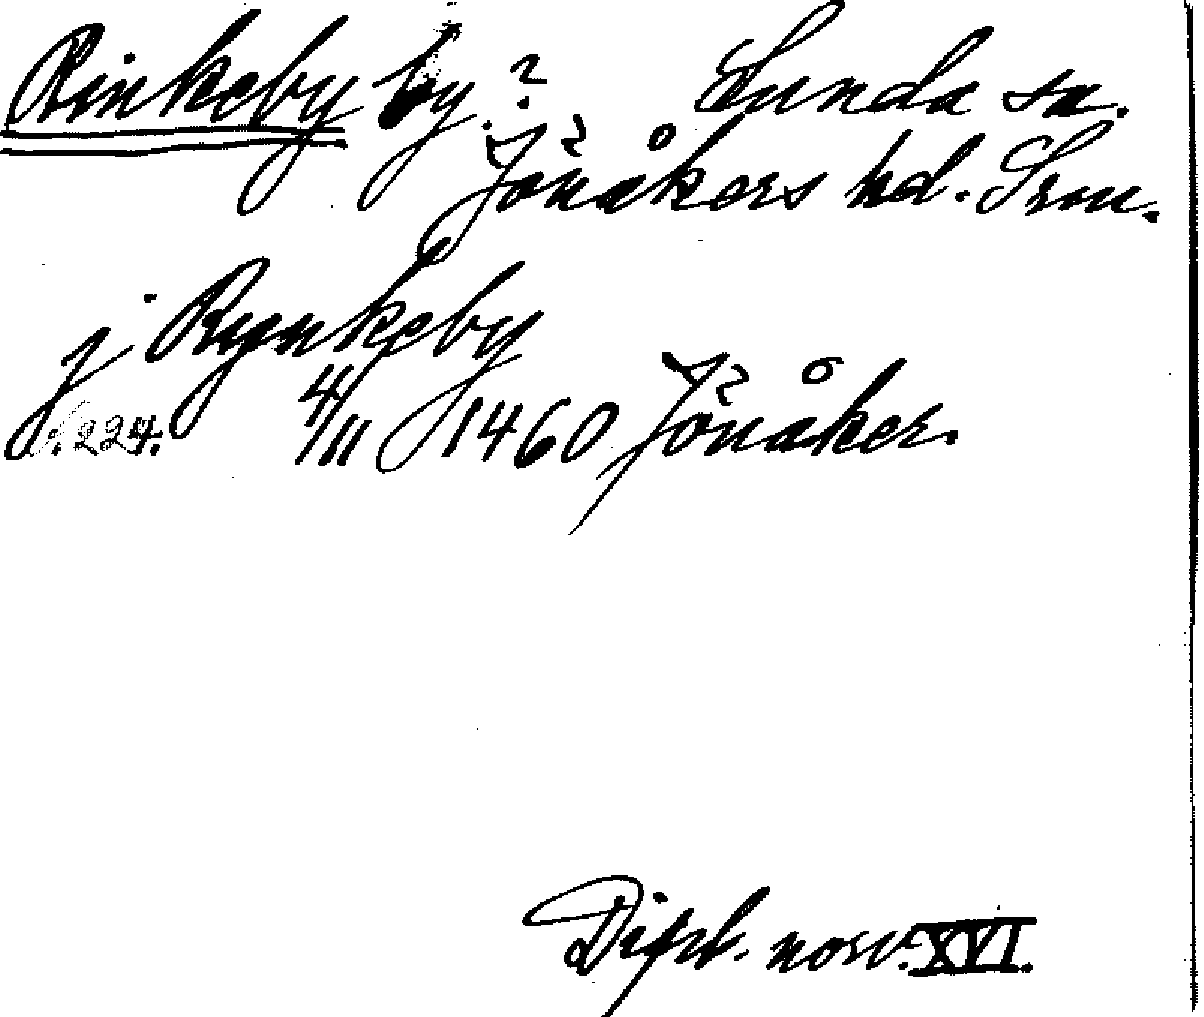 Rinkeby by? Lunda sn.
Jönåkers hd. Srm.
j Rynkeby
s. 224. 4/11 1460 Jönåker.
Dipl. norv. XVI.